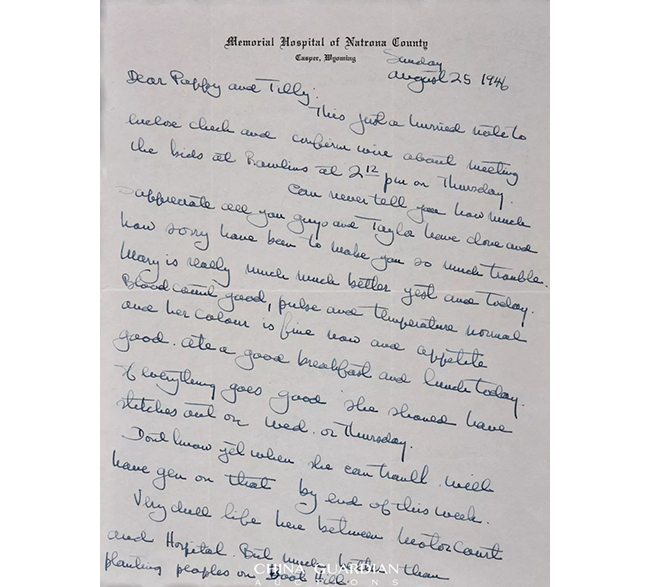 Memorial Hospital of Natrona County
Casper, Wyoming
Sunday
August 25 1946
Dear Pappy and Tilly:
This just a hurried note to
enclose check and confirm wire about meeting
the kids at Rawlins at 2 12 pm on Thursday.
Can never tell you how much
I appreciate all you guys and Taylor have done and
how sorry have been to make you so much trouble.
Mary is really much much better yest and today.
Blood count good, pulse and temperature normal
and her colour is fine now and appetite
good. ate a good breakfast and lunch today.
If everything goes good she should have
stitches out on Wed. or Thursday.
Dont know yet when she can travel. Will
have gen on that by end of this week.
Very dull life here between Motor Court
and Hospital. But much better than
planting peoples on Boot Hill.
CHINA GUARDIAN
AUCTIONS